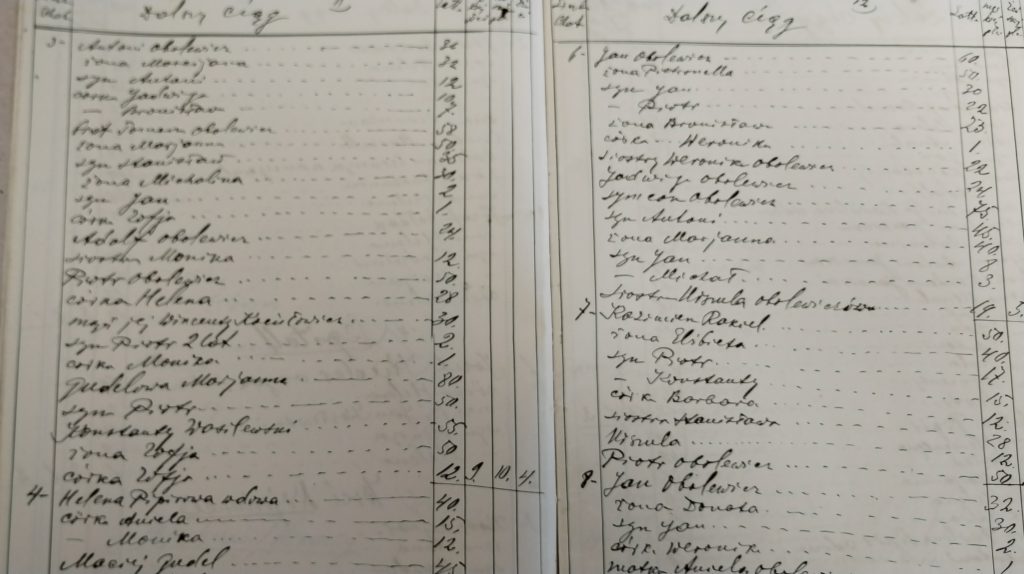 11
Chat.
Dalszy ciąg
Lat.
3- Antoni Obolewicz 32
żona Marcjana 32
syn Antoni 12
córka Jadwiga 10
– Bronisława
Obolewicz
żona Marjanna
syn Stanisław
żona Michalina
syn Jan
córka Zofja
Adolf Obolewicz 24
siostra Monika 12
Piotr Obolewicz 50.
córka Helena 28
mąż jej Wincenty 30.
syn Piotr 2 lat 2.
córka Monika 1.
Gudelowa Marjanna 80.
syn Piotr 50.
Konstanty Wasilewski 55
żona Zofja 50
córka Zofja 12. 9. 10. 4.
4- Helena wdowa 40.
córka Aniela 15.
– Monika 12.
Maciej Gudel 45
12
Chat.
Dalszy ciąg
Latt.
6- Jan Obolewicz 60.
żona Petronella 50.
syn Jan 30
– Piotr 22
żona Bronisława 23.
córka Weronika 1.
siostry Weronika Obolewicz 22
Jadwiga Obolewicz 24
Symeon Obolewicz 75
syn Antoni 45.
żona Marjanna 40
syn Jan 8
– Michał 3.
siostra Urszula Obolewiczówna 19.
7- Kazimierz 50.
żona Elżbieta 40.
syn Piotr 17.
– Konstanty 15.
córka Barbara 12.
siostra Stanisława 28
Urszula 12.
Piotr Obolewicz 50.
8- Jan Obolewicz 32
żona Donata 30.
syn Jan 2.
córka Weronika 1
matka Aniela